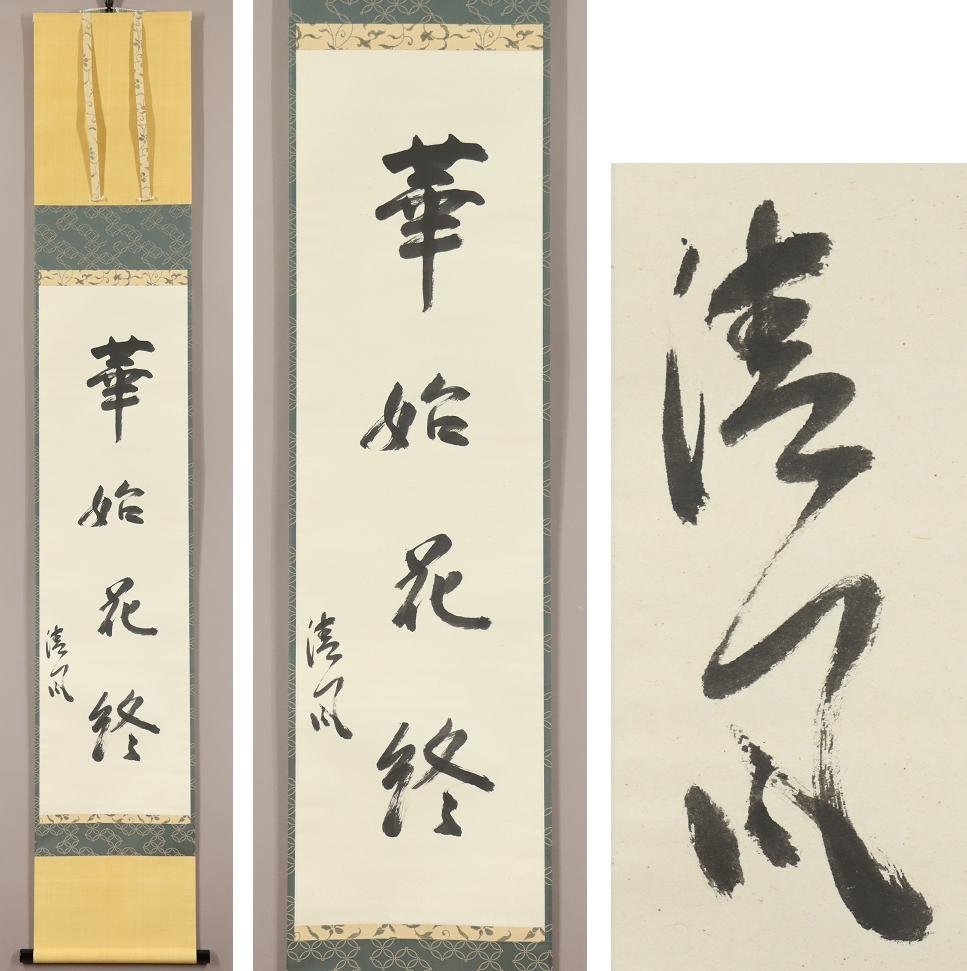 華始花終
清風
華始花終
清風
清風